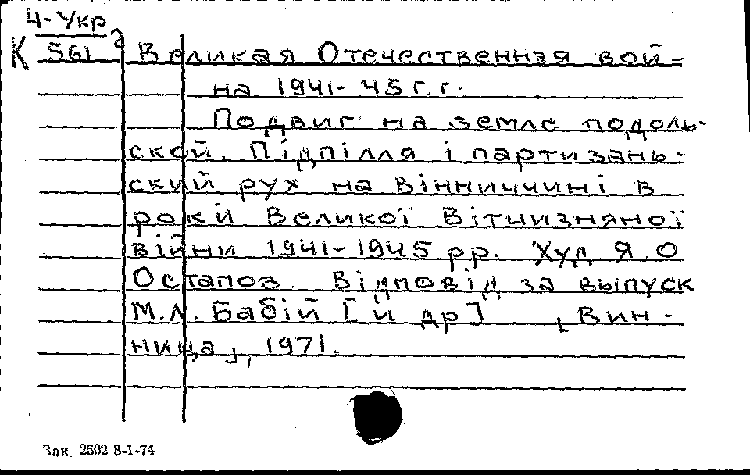 Ч-Укр
К 561 Великая Отечественная вой-
на 1941-45 г.г.
Подвиг на земле подоль-
ской. Підпілля і партизань-
ский рух на Вінниччині в
роки Великої Вітчизняної
війни 1941-1945 рр. Худ Я.О
Остапов. Відповід за выпуск
М.Л. Бабій [й др] [Вин-
ница], 1971.
Зак. 2502 8-1-74